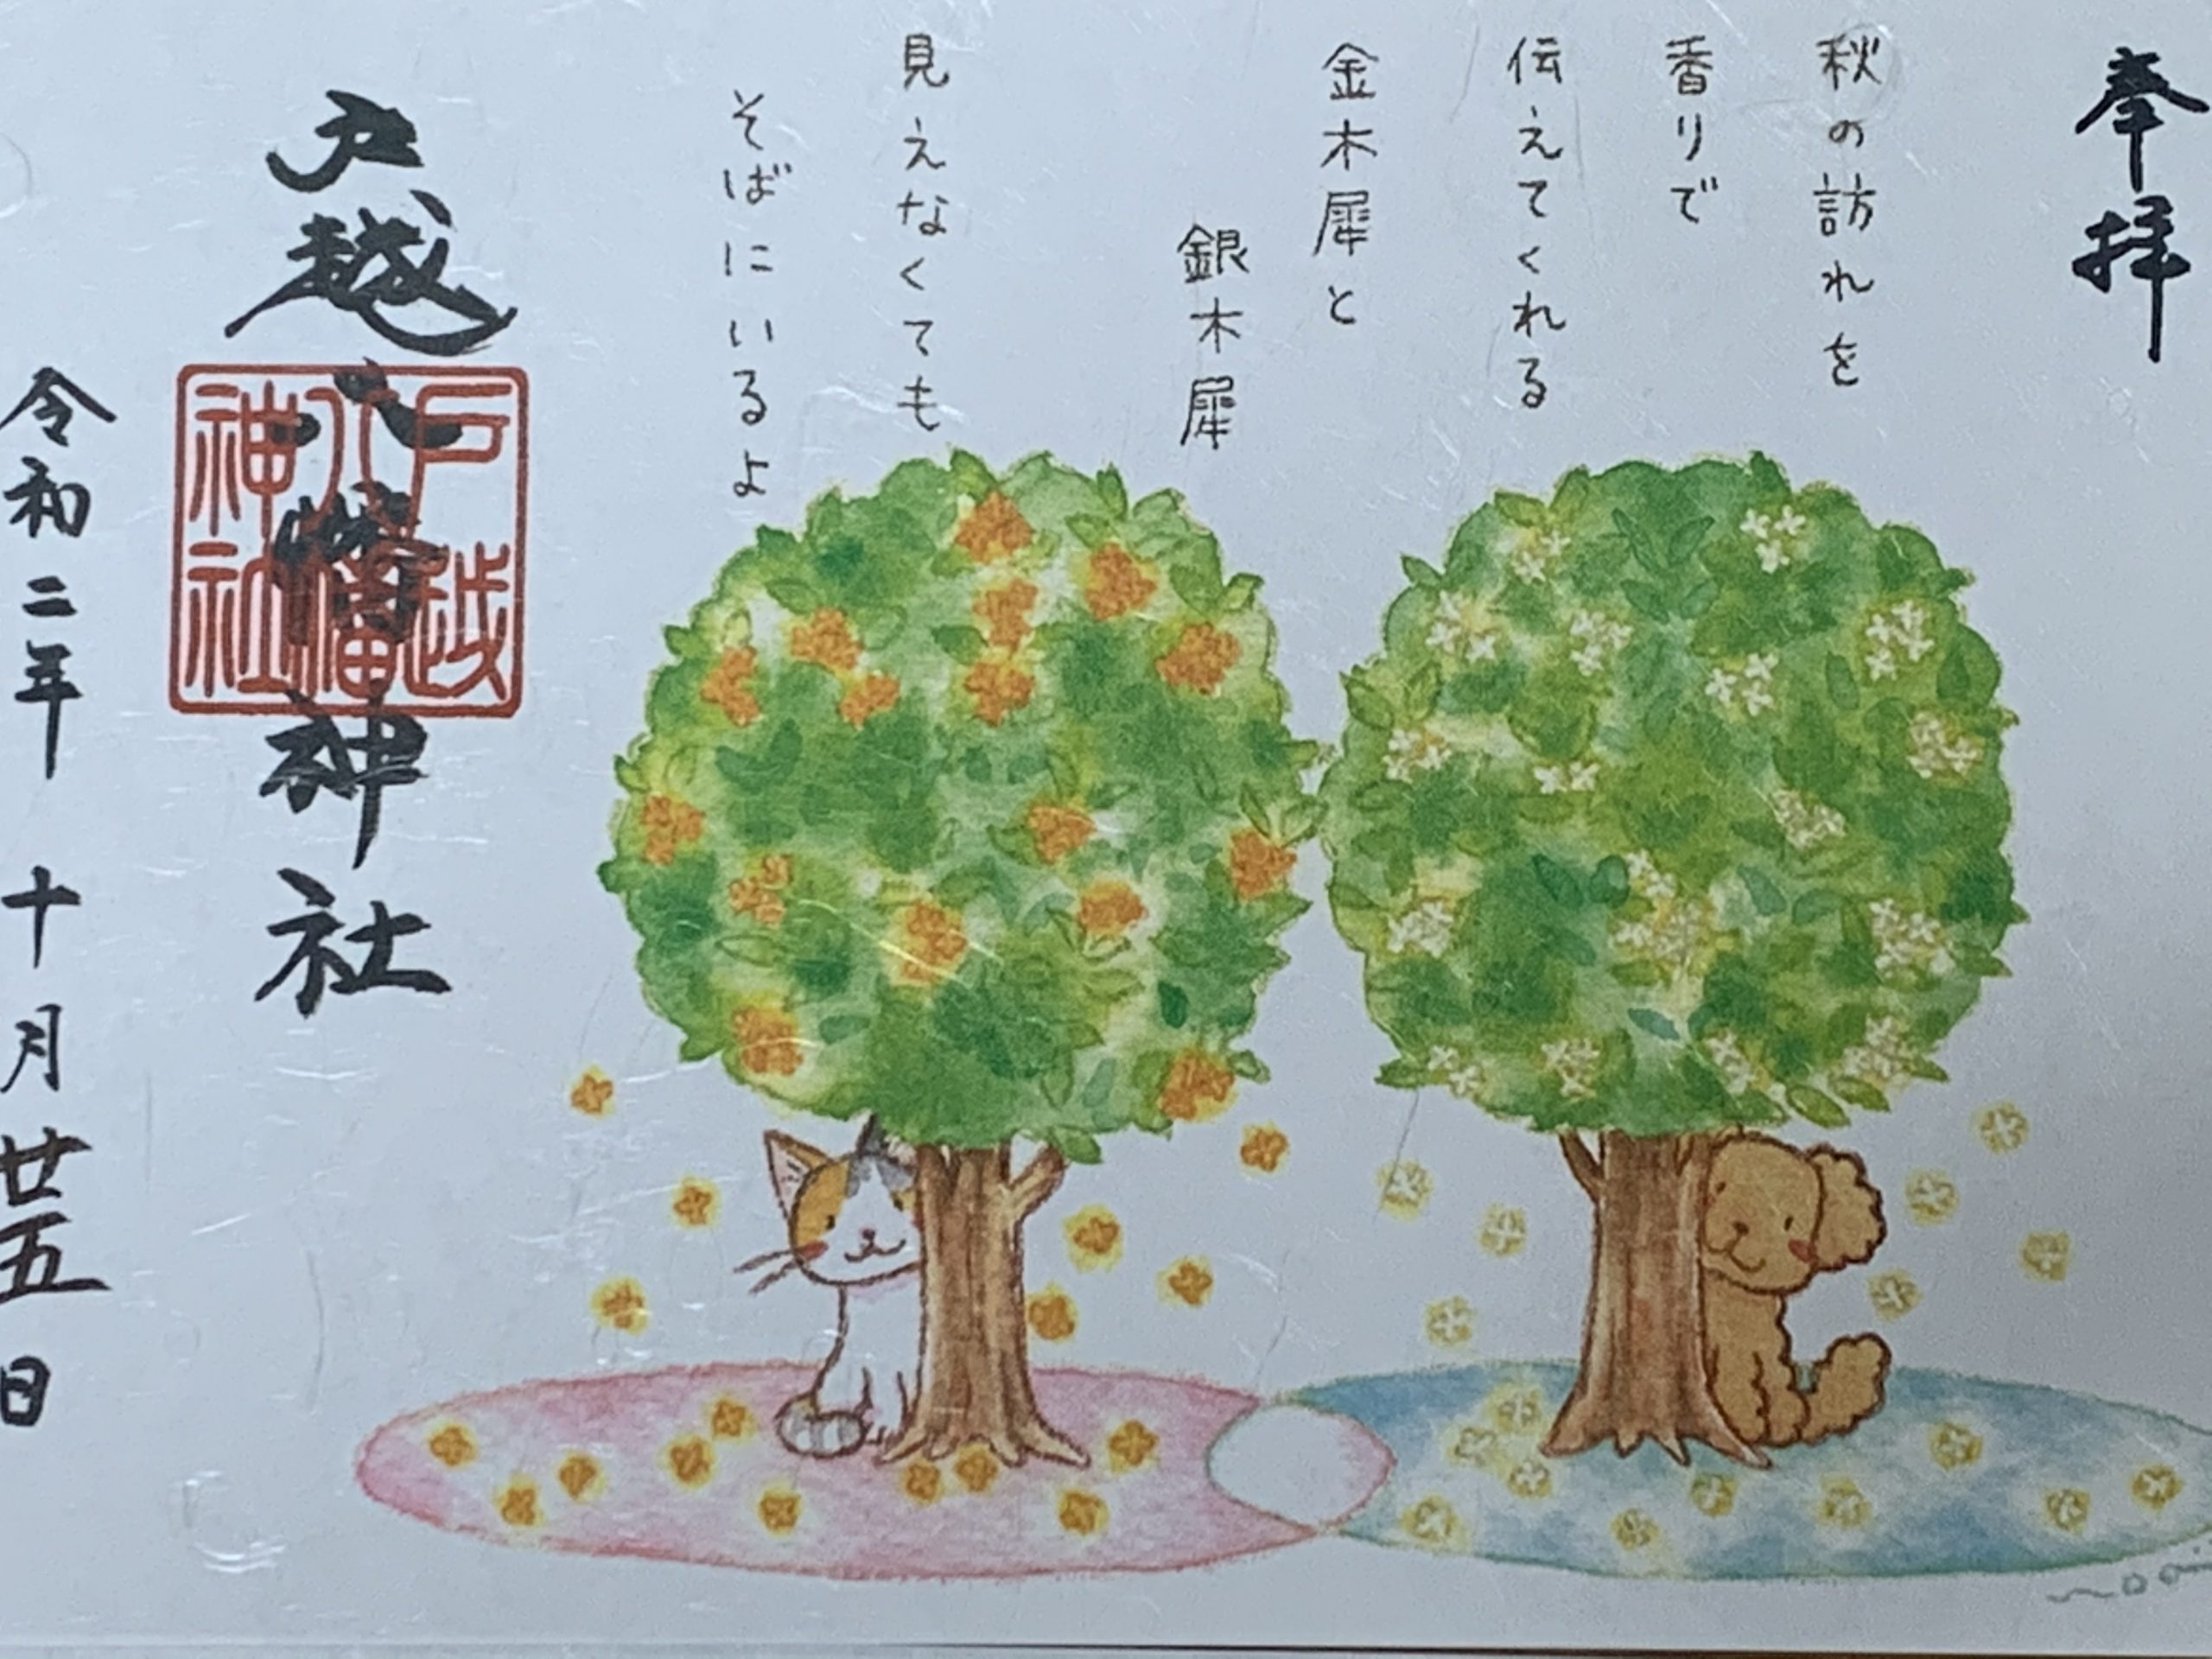 奉拝
秋の訪れを
香りで
伝えてくれる
金木犀と
銀木犀
見えなくても
そばにいるよ
戸越八幡神社
戸越
八幡
神社
令和二年 十月廿五日